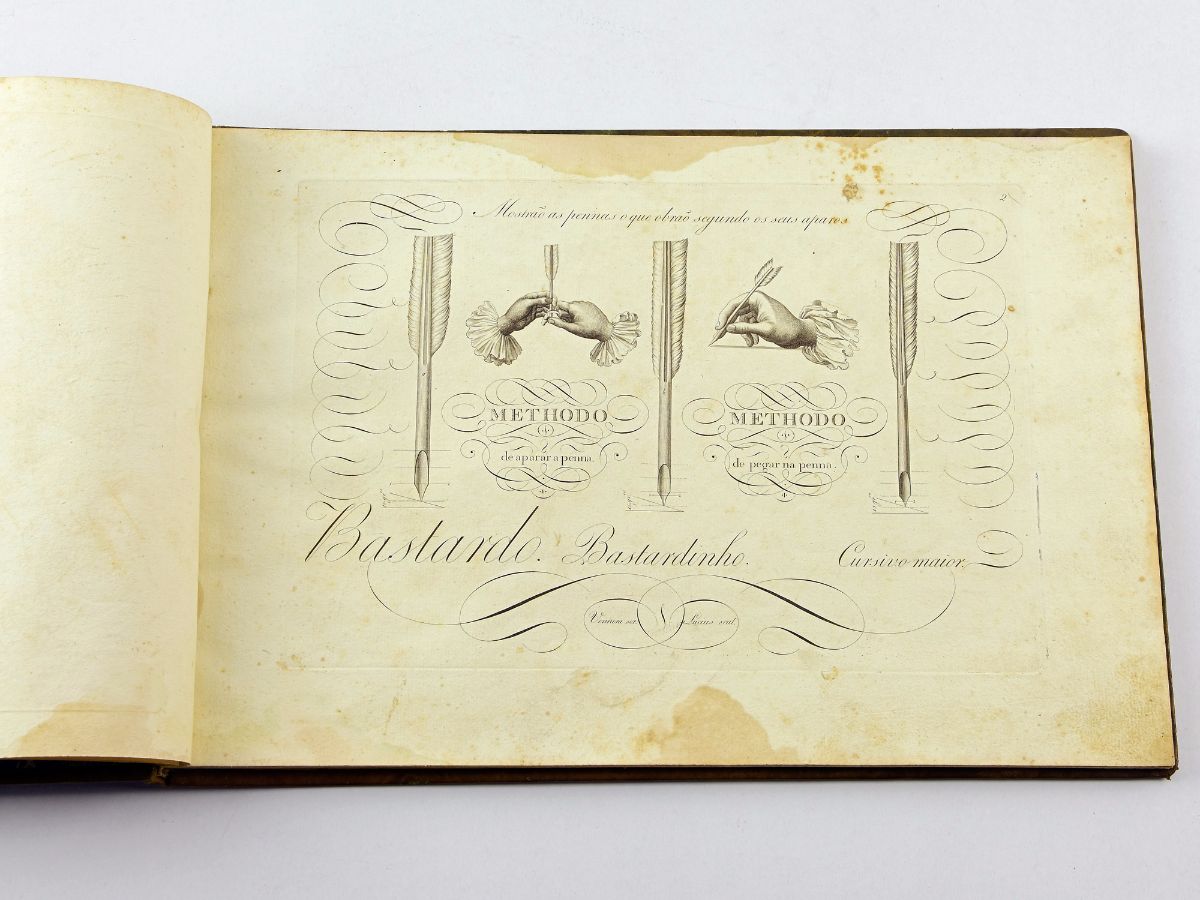 2
Mostrão as pennas o que obrão segundo os seus aparos
METHODO
de aparar a penna.
METHODO
de pegar na penna.
Bastardo. Bastardinho. Cursivo maior.
Lucius scul.